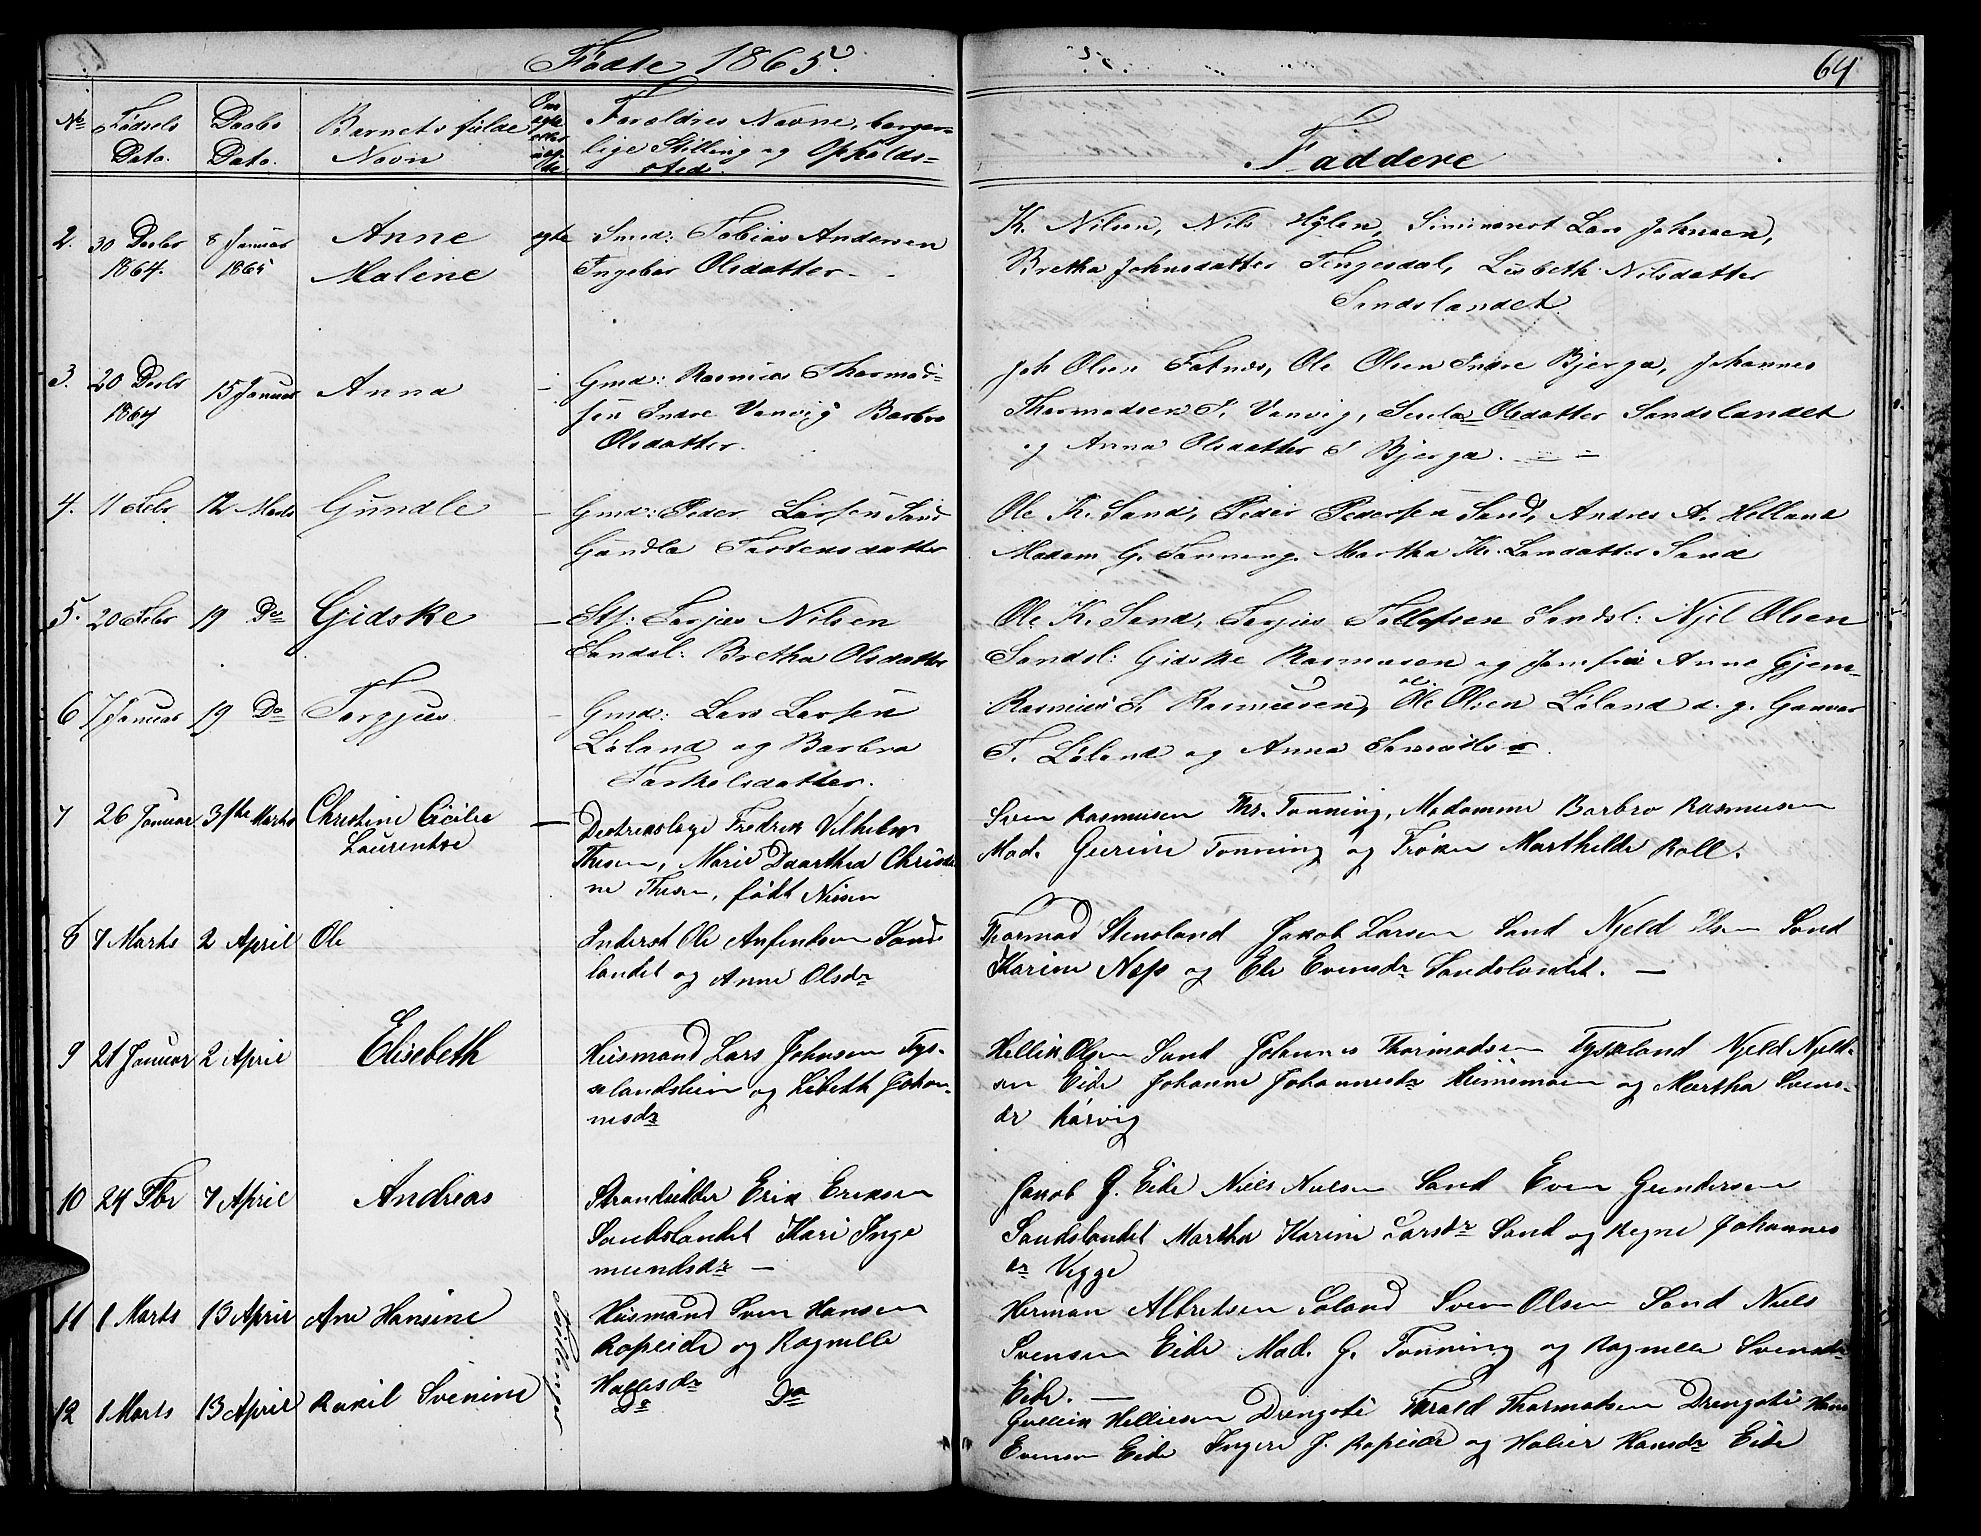 Fødte 1865.
64
No
Fødsels Dato.
Daabs Dato.
Barnets fulde Navn
Om ægte eller uægte
Forældres Navne, borgerlige Stilling og Opholdssted.
Faddere
2.
30 Decbr 1864.
8 Januar 1865
Anne
Malene
ægte
Smed: Tobias Andersen
Ingebor Olsdatter
K. Nilsen, Nils Hylen, Lars Johnsen,
Bretha Johnsdatter Tengesdal, Lisbeth Nilsdatter
Sandslandet
3.
20 Decbr 1864
15 Januar
Anna
Gmd: Rasmus Thormod-
sen Indre Vanvig Barbro
Olsdatter.
Joh Olsen Fatnæs, Ole Olsen Indre Bjerga, Johannes
Thormodsen I. Vanvig, Olsdatter Sandslandet
og Anna Olsdatter I Bjerga.
4.
11 Febr
12 Marts
Gundle
Gmd: Peder Larsen Sand
Gundla Torstensdatter
Ole K. Sand, Peder Pedersen Sand, Andres A. Helland
Madam G. Tonning. Martha Kr. Larsdatter Sand
5.
20 Febr
19 Do
Gidske
Torjus Nilsen
Sandsl: Bretha Olsdatter
Ole K. Sand, Torjus Tollefsen Sandsl: Njel Olsen
Sandsl: Gidske Rasmusen og Jomfru Anne Gjem-
6
7 Januar
19 Do
Torgjus.
Gmd: Lars Larsen
Løland og Barbra
Torkelsdatter.
Rasmus S. Rasmusen, Ole Olsen Løland d. y. Gunvor
T. Løland og Anna
7
26 Januar
3 Marts
Christine Cecilie
Laurentse
Distriktslæge Fredrik Vilhelm
Thesen, Marie Daarthea Christi-
ne Thesen, født Nissen
Sven Rasmusen Ths. Tonning, Madamme Barbro Rasmusen
Mad. Gurine Tonning og Frøken Marthilde Roll.
8
7 Marts
2 April
Ole
Inderst Ole Anfindsen Sands
landet og Anne Olsdr
Tormod Stensland Jakob Larsen Sand Njeld Olsen Sand
Karine Næs og Eli Evensdr Sandslandet.
9
21 Januar
2 April
Elisebeth
Huusmand Lars Johnsen Tys-
slandslien og Lisbeth Johan-
nesdr
Hellik Olsen Sand Johannes Thormodsen Tysland Njeld Njeld-
sen Eide Johanne Johannesdr og Martha Svens-
dr Aarvig
10
24 Fbr
7 April
Andreas
Strandsidder Erik Eriksen
Sandslandet Kari Inge
mundsdr
Jakob G. Eide Niels Nielsen Sand Even Gundersen
Sandslandet Martha Karine Larsdr Sand og Regne Johannes
dr Vegge
11
1 Marts
13 April
Ane Hansine
Tvillinger
Huusmand Sven Hansen
Ropeide og Ragnelle
Hallesdr
Herman Albretsen Løland Sven Olsen Sand Niels
Svensen Eide Mad. G. Tonning og Ragnelle Svensdr
Eide.
12
1 Marts
13 April
Rakel Svenine
Do Do
Gullik Helliesen Drengsti Torald Thormodsen Drengsti Hans
Evensen Eide Ingere J. Ropeide og Hansdr Eide